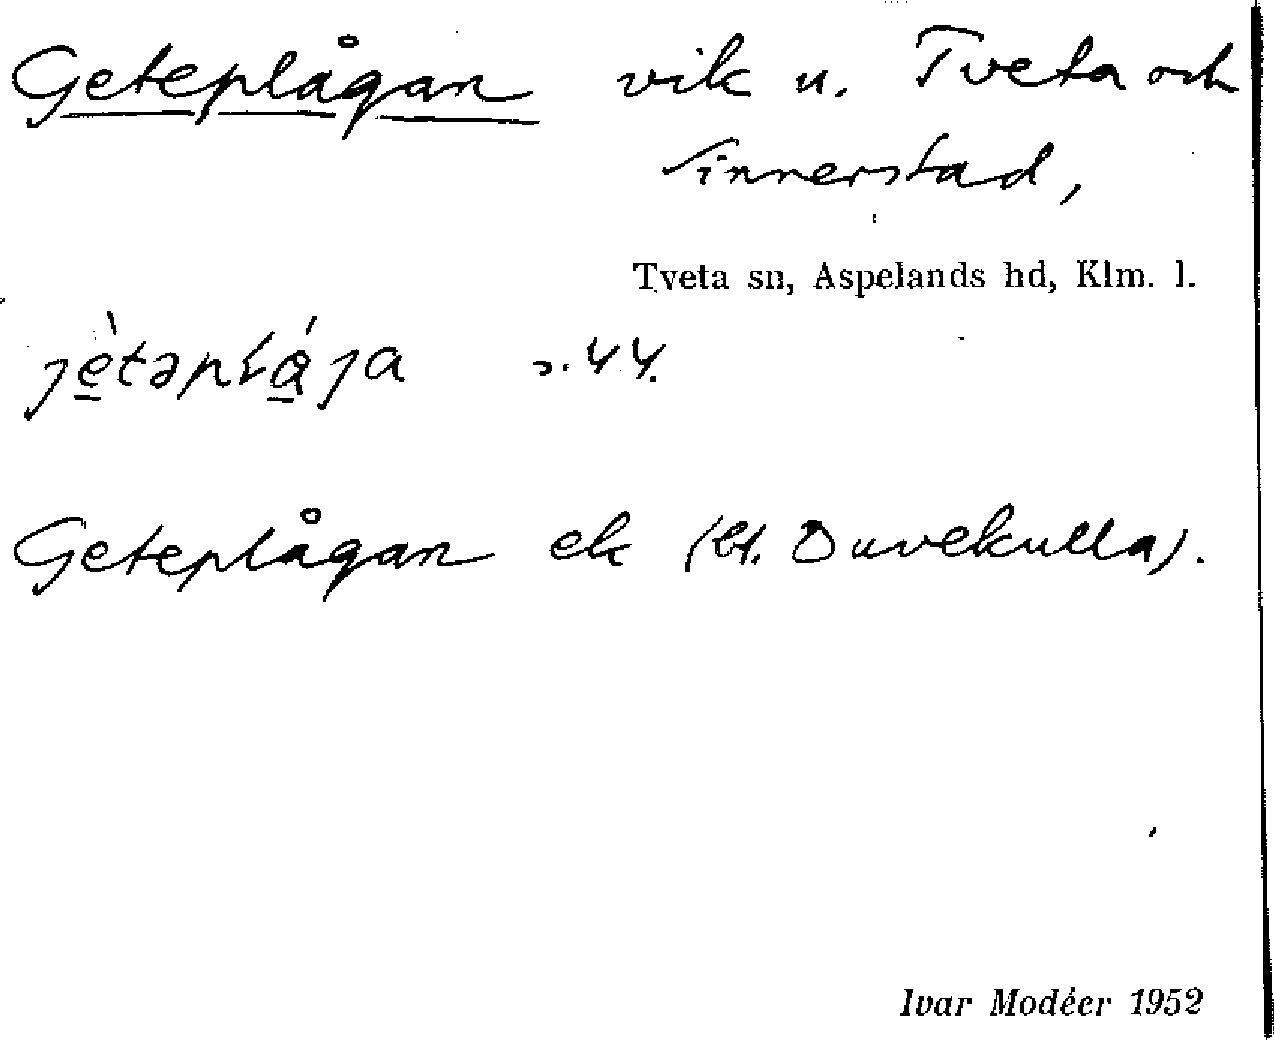 Geteplågan vik u. Tveta och
Sinnerstad,
Tveta sn, Aspelands hd, Klm. l.
s. 44.
Geteplågan ek (St. Duvekulla).
Ivar Modéer 1952